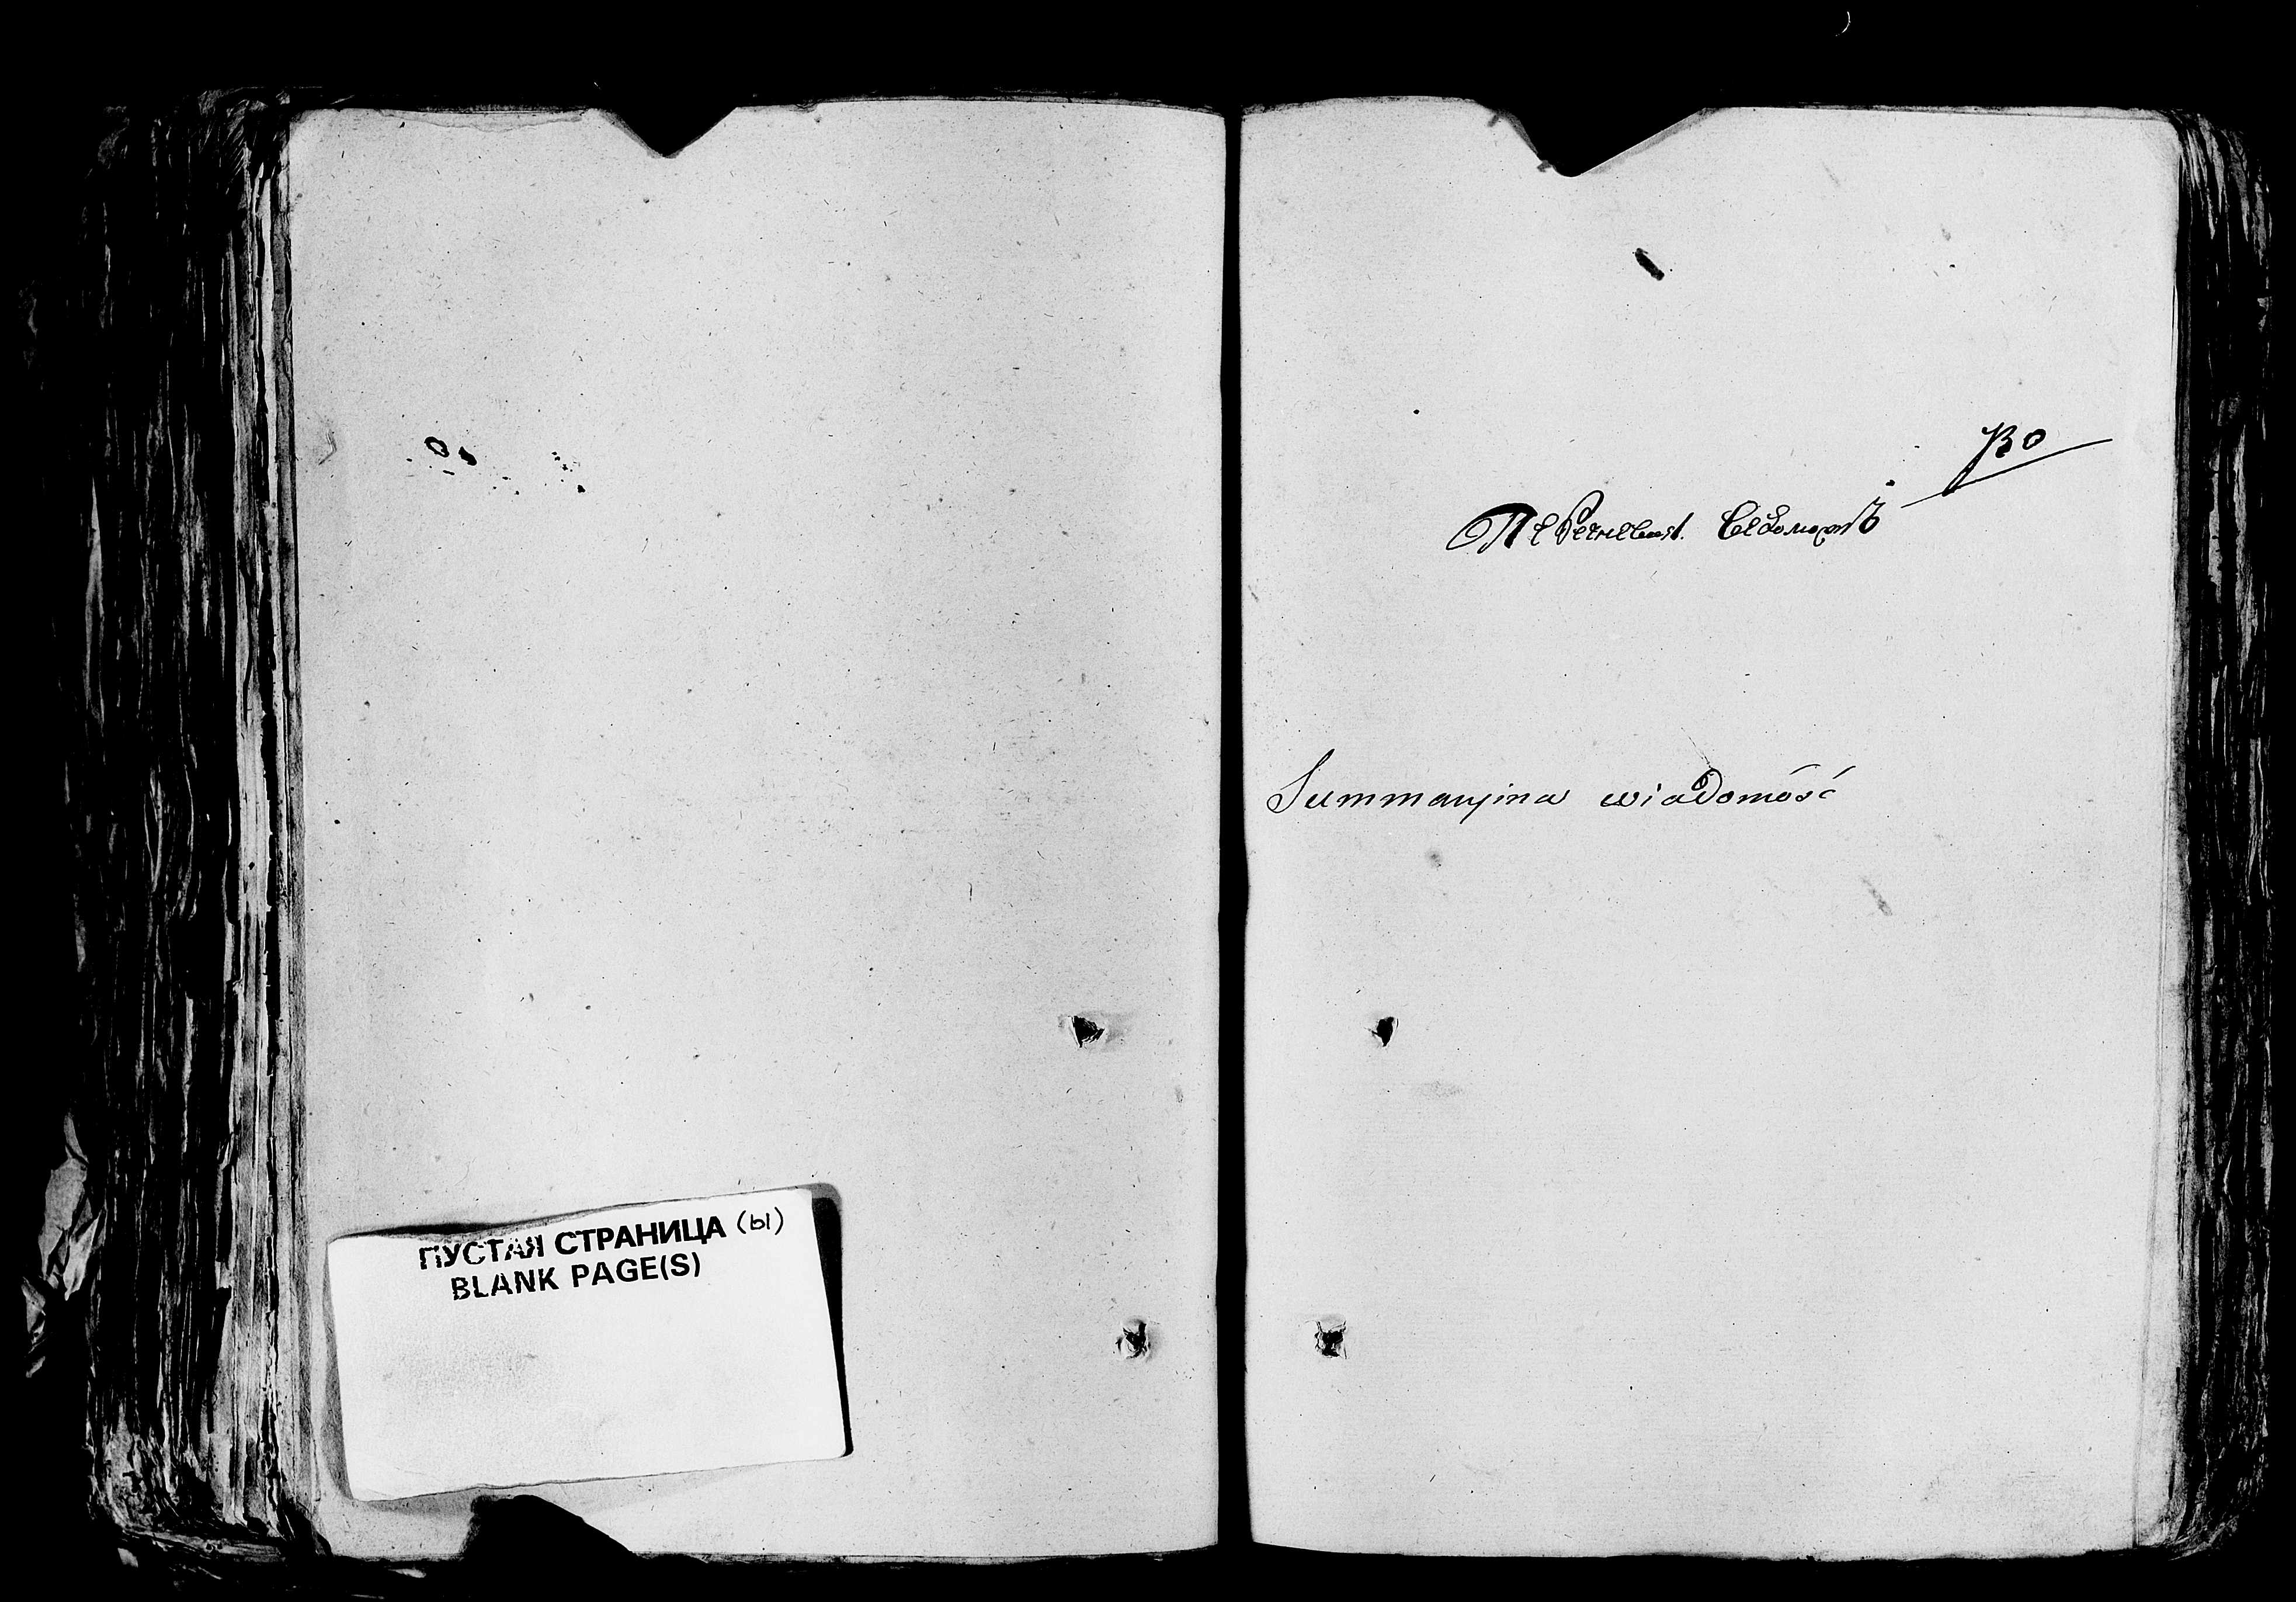 ПУСТАЯ СТРАНИЦА (ы)
BLANK PAGE(S)
Перечневая Ведомость
Summaryina wiadomość